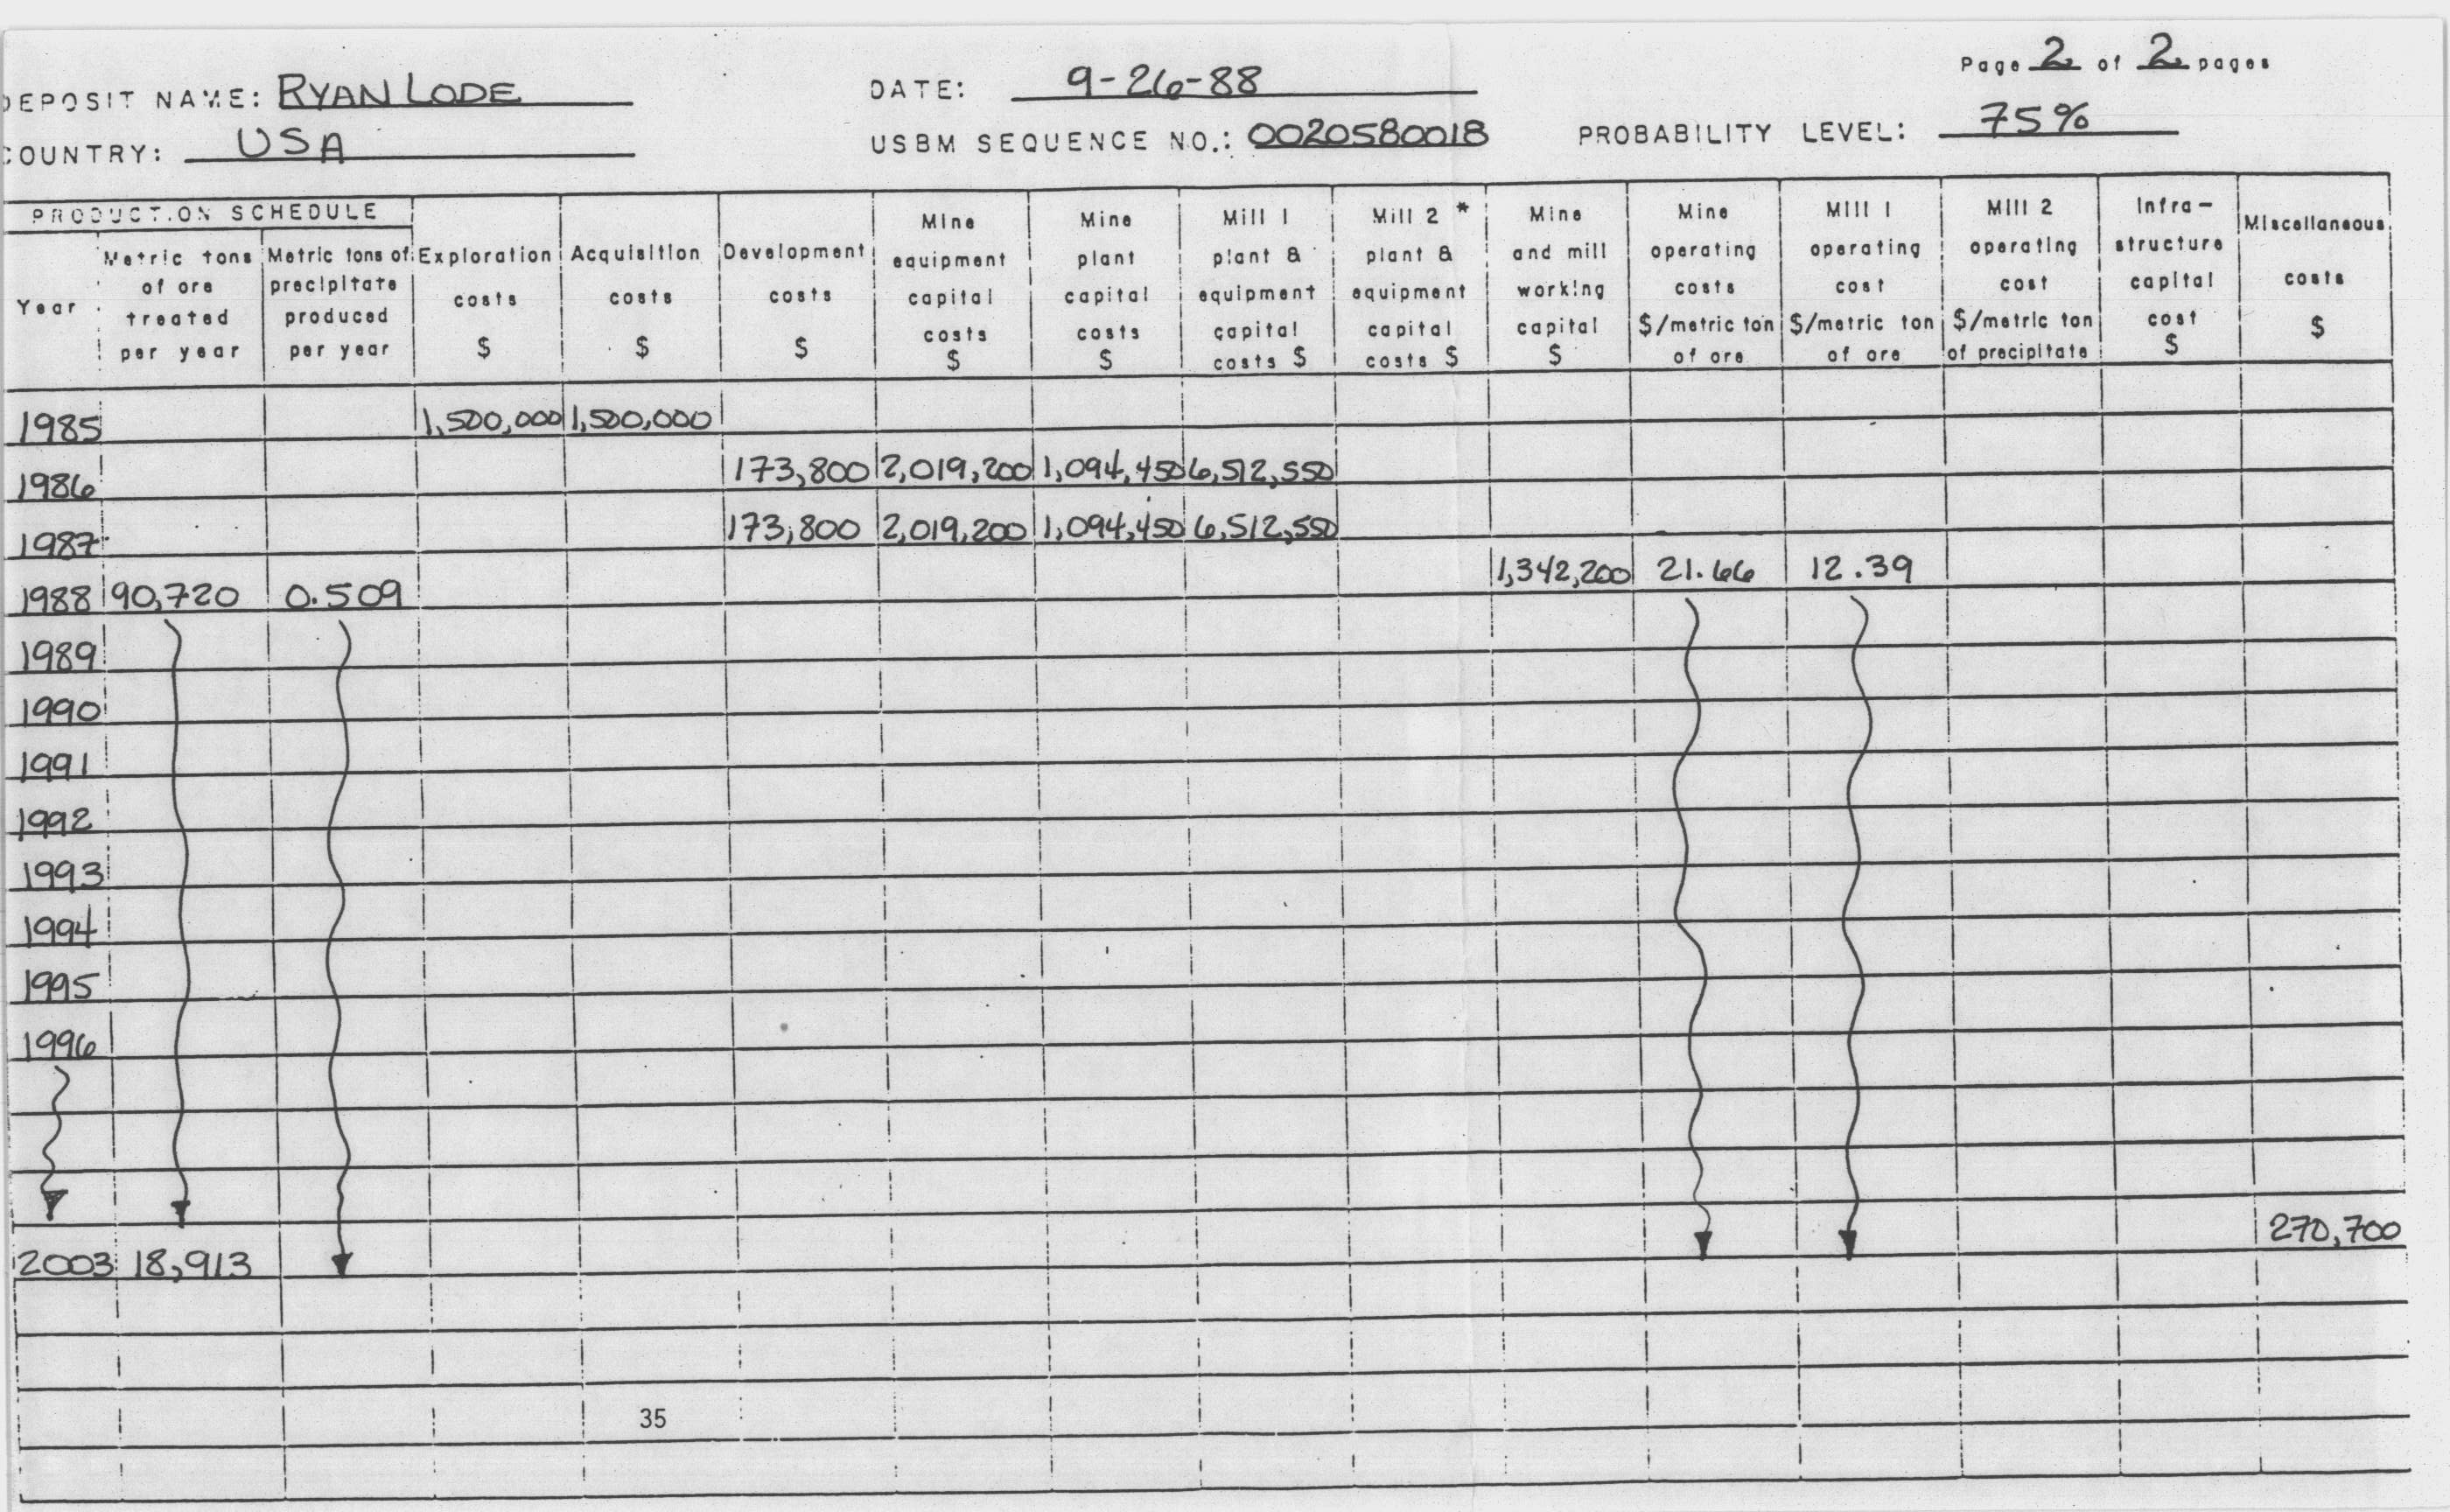 Page 2 of 2 pages
DEPOSIT NAME: RYAN LODE DATE: 9-26-88
COUNTRY: USA USBM SEQUENCE NO.: 0020580018 PROBABILITY LEVEL: 75%
PRODUCTION SCHEDULE
Year
Metric tons
of ore
treated
per year
Metric tons of
precipitate
produced
per year
Exploration
costs
$
Acquisition
costs
$
Development
costs
$
Mine
equipment
capital
costs
$
Mine
plant
capital
costs
$
Mill 1
plant &
equipment
capital
costs $
Mill 2 *
plant &
equipment
capital
costs $
Mine
and mill
working
capital
$
Mine
operating
costs
$/metric ton
of ore
Mill 1
operating
cost
$/metric ton
of ore
Mill 2
operating
cost
$/metric ton
of precipitate
Infra-
structure
capital
cost
$
Miscellaneous
costs
$
1985 1,500,000 1,500,000
1986 173,800 2,019,200 1,094,450 6,512,550
1987 173,800 2,019,200 1,094,450 6,512,550
1988 90,720 0.509 1,342,200 21.66 12.39
1989
1990
1991
1992
1993
1994
1995
1996
2003 18,913 270,700
35